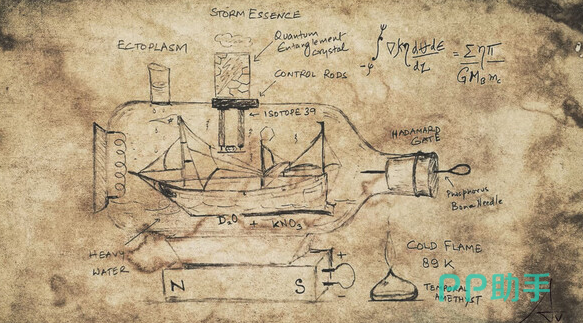 STORM ESSENCE
ECTOPLASM
Quantum
Entanglement
crystal
CONTROL RODS
ISOTOPE 39
HADAMARD
GATE
Phosphorus
Bone Needle
D₂O + KNO₃
HEAVY
WATER
N S
+
-
COLD FLAME
89 K
TEMPORAL
AMETHYST
PP助手